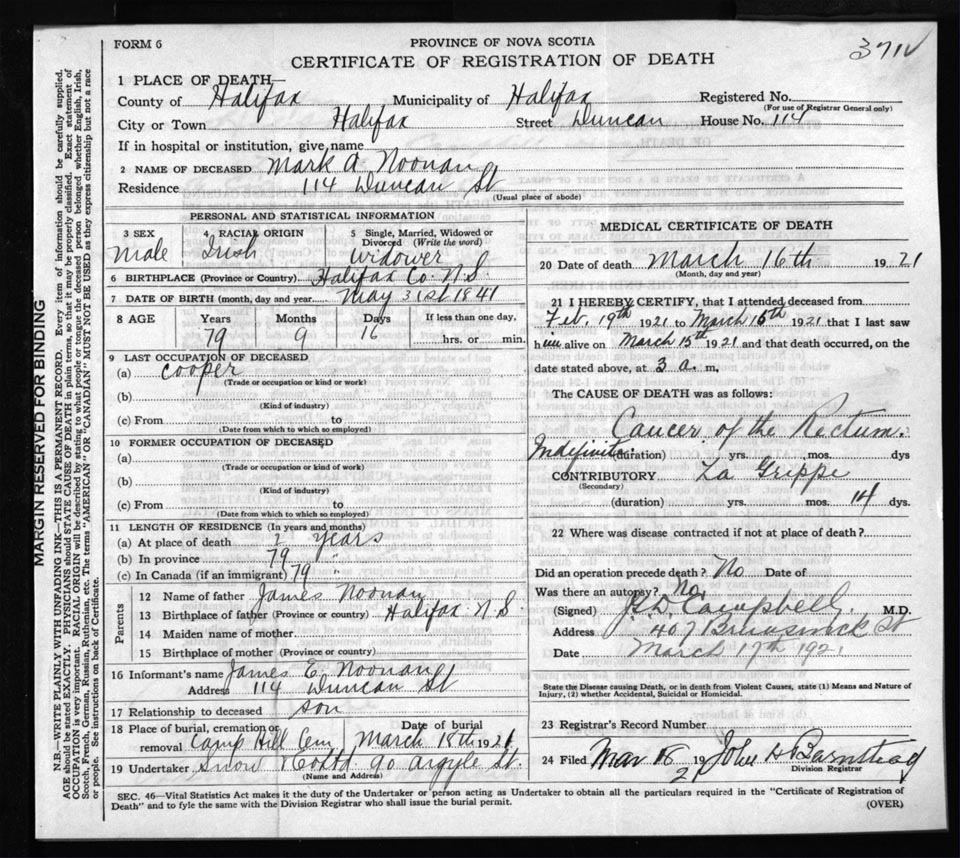 FORM 6
PROVINCE OF NOVA SCOTIA
CERTIFICATE OF REGISTRATION OF DEATH
1 PLACE OF DEATH—
County of Halifax Municipality of Halifax Registered No.
(For use of Registrar General only)
City or Town Halifax Street Duncan House No. 114
If in hospital or institution, give name
2 NAME OF DECEASED Mark A Noonan
Residence 114 Duncan St
(Usual place of abode)
PERSONAL AND STATISTICAL INFORMATION
3 SEX
male
4 RACIAL ORIGIN
Irish
5 Single, Married, Widowed or Divorced (Write the word)
Widower
6 BIRTHPLACE (Province or Country) Halifax Co N.S.
7 DATE OF BIRTH (month, day and year) May 31st 1841
8 AGE Years Months Days If less than one day,
79 9 16 hrs. or min.
9 LAST OCCUPATION OF DECEASED
(a) cooper
(Trade or occupation or kind or work)
(b)
(Kind of industry)
(c) From to
(Date from which to which so employed)
10 FORMER OCCUPATION OF DECEASED
(a)
(Trade or occupation or kind of work)
(b)
(Kind of industry)
(c) From to
(Date from which to which so employed)
11 LENGTH OF RESIDENCE (In years and months)
(a) At place of death years
(b) In province 79 "
(c) In Canada (if an immigrant) 79 "
Parents
12 Name of father James Noonan
13 Birthplace of father (Province or country) Halifax N.S.
14 Maiden name of mother
15 Birthplace of mother (Province or country)
16 Informant's name James E. Noonan
Address 114 Duncan St
17 Relationship to deceased son
18 Place of burial, cremation or removal Camp Hill Cem Date of burial March 18th 1921
19 Undertaker Snow & Co Ltd 90 Argyle St.
(Name and Address)
MEDICAL CERTIFICATE OF DEATH
20 Date of death March 16th 1921
(Month, day and year)
21 I HEREBY CERTIFY, that I attended deceased from
Feb. 19th 1921 to March 16th 1921 that I last saw
him alive on March 15th 1921 and that death occurred, on the
date stated above, at 3 a. m.
The CAUSE OF DEATH was as follows:
Cancer of the Rectum.
Indefinite. (duration) yrs. mos. dys
CONTRIBUTORY La Grippe
(Secondary)
(duration) yrs. mos. 14 dys.
22 Where was disease contracted if not at place of death?
Did an operation precede death? No Date of
Was there an autopsy? No.
(Signed) Campbell M.D.
Address 407 Brunswick St
Date March 17th 1921
State the Disease causing Death, or in death from Violent Causes, state (1) Means and Nature of
Injury, (2) whether Accidental, Suicidal or Homicidal.
23 Registrar's Record Number
24 Filed Mar 18 1921 John Barnstead
Division Registrar
SEC. 46—Vital Statistics Act makes it the duty of the Undertaker or person acting as Undertaker to obtain all the particulars required in the "Certificate of Registration of
Death" and to fyle the same with the Division Registrar who shall issue the burial permit.
(OVER)
MARGIN RESERVED FOR BINDING
N.B.—WRITE PLAINLY WITH UNFADING INK—THIS IS A PERMANENT RECORD. Every item of Information should be carefully supplied.
AGE should be stated EXACTLY. PHYSICIANS should STATE CAUSE OF DEATH in plain terms, so that it may be properly classified. Exact statement of
OCCUPATION is very important. RACIAL ORIGIN will be described by stating to what people or tongue the deceased person belonged whether English, Irish,
Scotch, French, German, Russian, Ruthenian, etc. The terms "AMERICAN" OR "CANADIAN" MUST NOT BE USED as they express citizenship but not a race
or people. See instructions on back of Certificate.